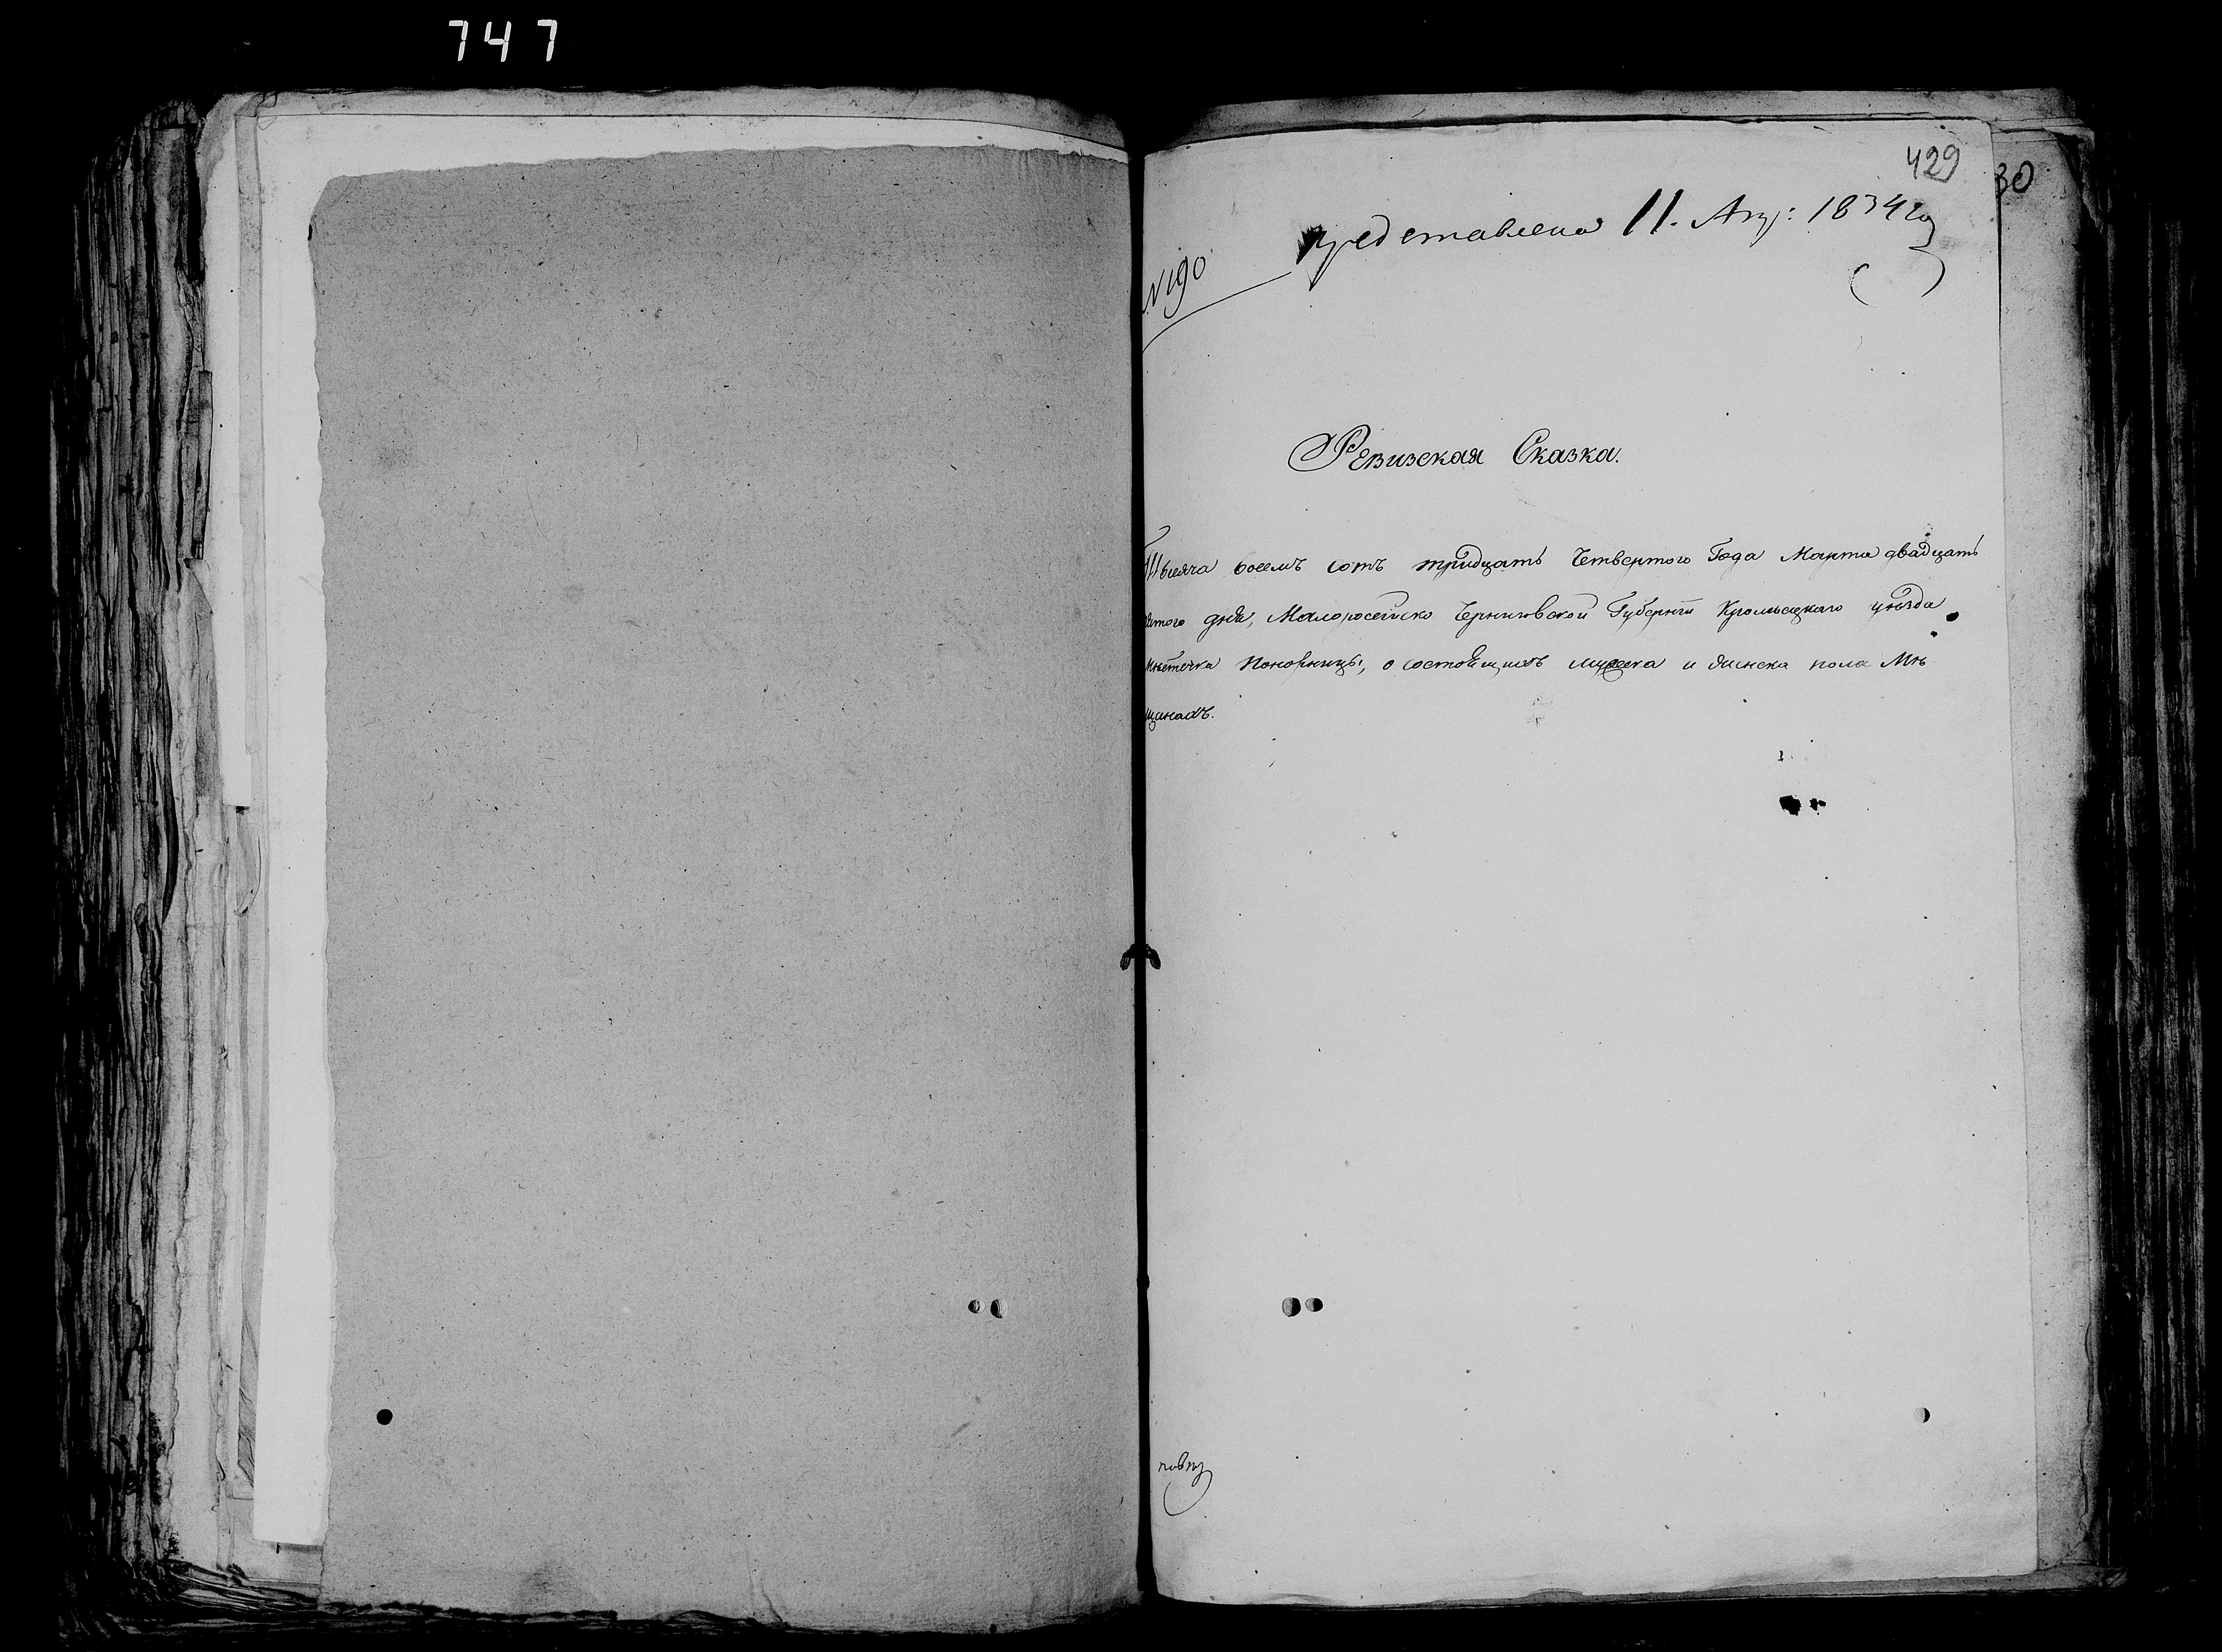 747
429
30
представлена 11. Апр: 1834 го
№190
Ревизская Сказка.
Тысяча восемъ сотъ тридцать Четвертого Года Марта двадцать
пятого дня, Малоросейско Черниговской Губерніи Кролевецкаго уѣзда
мѣстечка Понорницы, о состоящихъ мужеска и женска пола Мѣ
щанахъ.